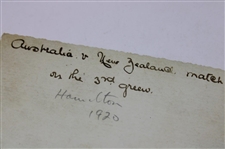 Australia v New Zealand match
on the 3rd green.
Hamilton
1920